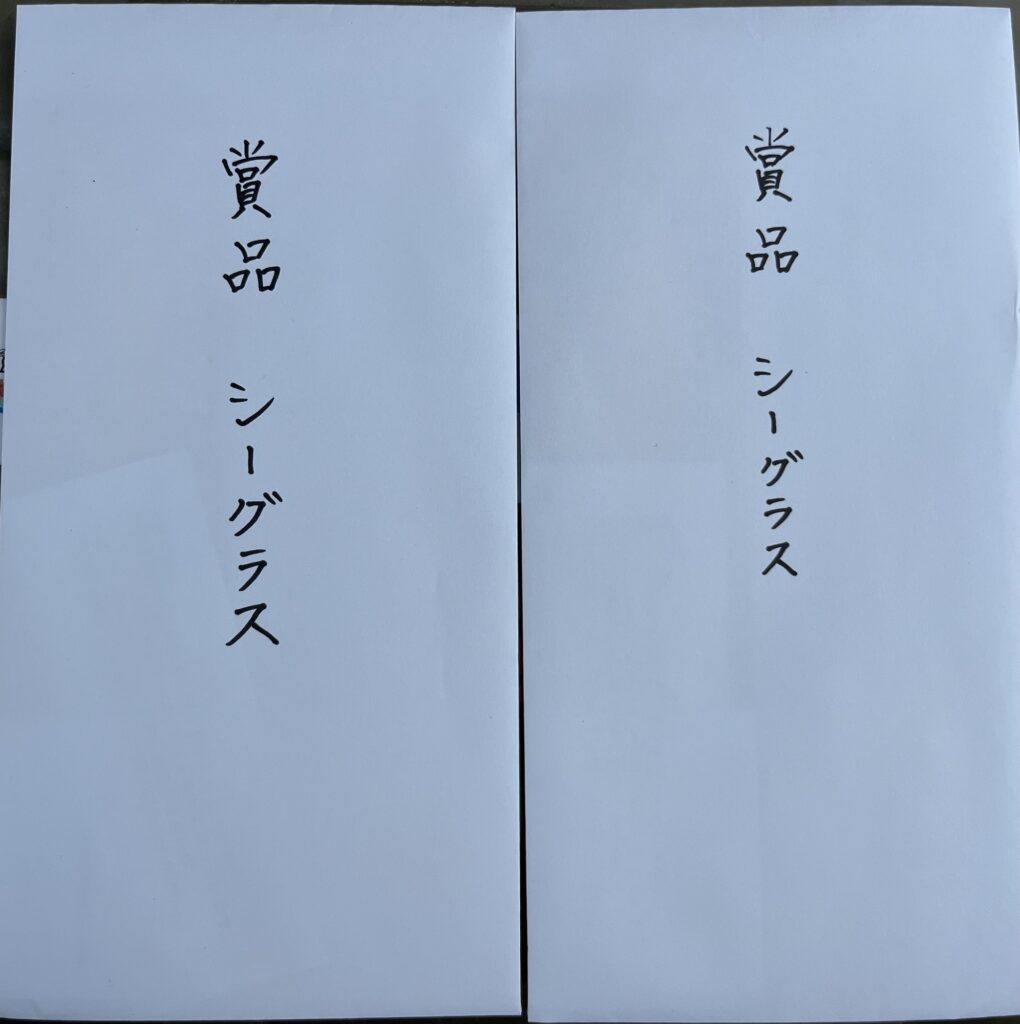 賞品 シーグラス
賞品 シーグラス